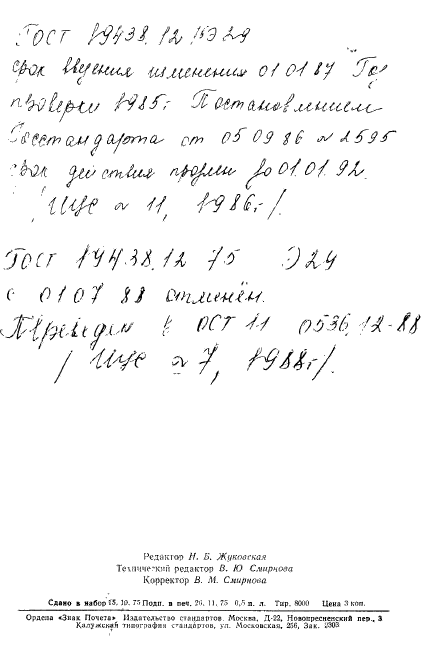 ГОСТ 19438.12 Э29
срок введения изменения 01 01 87 Год
проверки 1985г Постановлением
Госстандарта от 05 09 86 № 2595
срок действия продлен до 01.01.92.
/ИУС № 11, 1986г/.
ГОСТ 19438.12 75 Э29
с 01 07 88 отменён.
Переведен в ОСТ 11 0536.12-88
/ИУС № 7, 1988г/.
Редактор Н. Б. Жуковская
Технический редактор В. Ю Смирнова
Корректор В. М. Смирнова
Сдано в набор 15. 10. 75 Подп. в печ. 26. 11. 75 0,5 п. л. Тир. 8000 Цена 3 коп.
Ордена «Знак Почета» Издательство стандартов. Москва, Д-22, Новопресненский пер., 3
Калужская типография стандартов, ул. Московская, 256, Зак. 2303